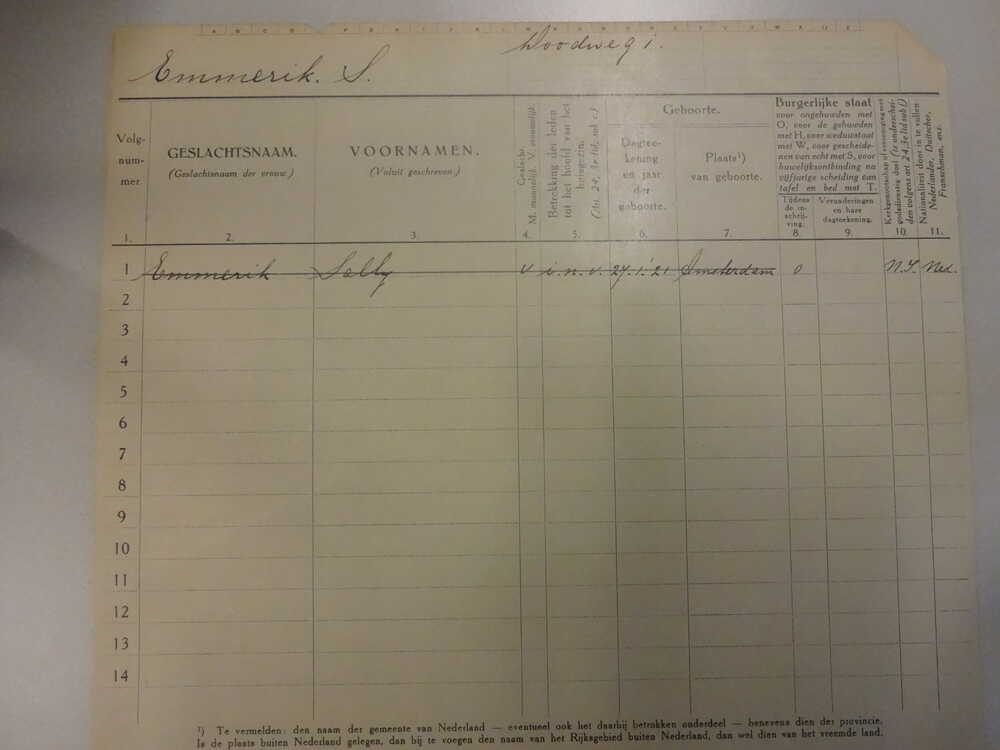 A B C D E F G H I J K L M N O P R S T U V W IJ Z
Doodweg 1.
Emmerik. S.
Volg-
num-
mer
1.
GESLACHTSNAAM.
(Geslachtsnaam der vrouw.)
2.
VOORNAMEN.
(Voluit geschreven.)
3.
Geslacht.
M. mannelijk, V. vrouwelijk.
4.
Betrekking der leden
tot het hoofd van het
huisgezin.
(Art. 24, 3e lid, sub c.)
5.
Geboorte.
Dagtee-
kening
en jaar
der
geboorte.
6.
Plaats¹)
van geboorte.
7.
Burgerlijke staat
voor ongehuwden met
O, voor de gehuwden
met H, voor weduwstaat
met W, voor gescheide-
nen van echt met S, voor
huwelijksontbinding na
vijfjarige scheiding van
tafel en bed met T.
Tijdens
de in-
schrij-
ving.
8.
Veranderingen
en hare
dagteekening.
9.
Kerkgenootschap of
den volgens art 24, 3e lid sub f)
10.
Nationaliteit door in te vullen
Nederlander, Duitscher,
Franschman, enz.
11.
1 Emmerik Sally v i.n.v. 27.1.'21 Amsterdam O N.I. Ned.
2
3
4
5
6
7
8
9
10
11
12
13
14
¹) Te vermelden: den naam der gemeente van Nederland — eventueel ook het daarbij betrokken onderdeel — benevens dien der provincie.
Is de plaats buiten Nederland gelegen, dan bij te voegen den naam van het Rijksgebied buiten Nederland, dan wel dien van het vreemde land.